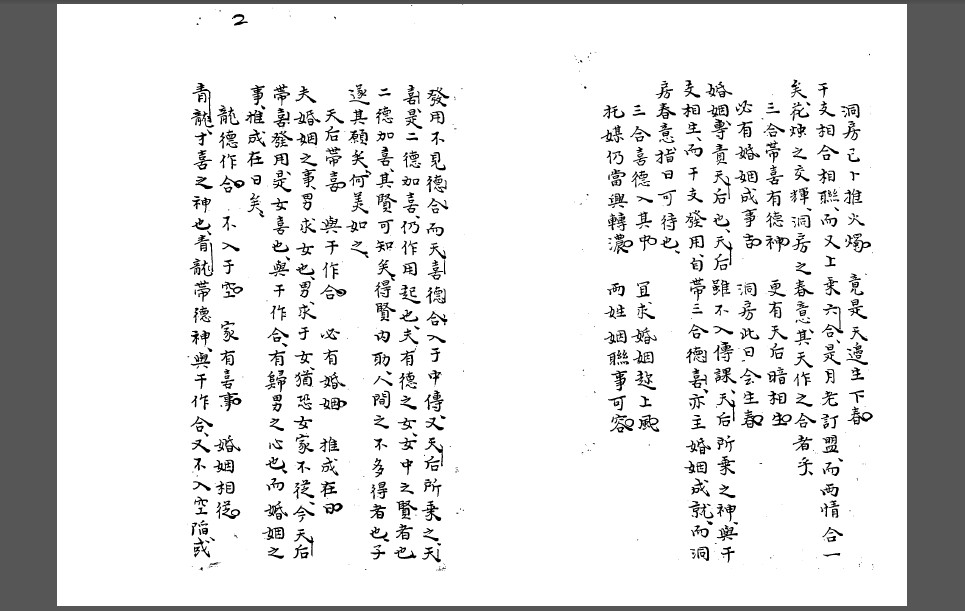 2
洞房已卜推火燭　竟是天邉生下春
干支相合相聯、而又上乗六合、是月老訂盟、而两情合一
矣、花烛之交輝、洞房之春意、其天作之合者乎、
三合帯喜有德神　更有天后暗相生
必有婚姻成事吉　洞房此日会生春
婚姻專責天后也、天后雖不入傳課、天后所乗之神、與干
支相生、而干支發用自帯三合德喜、亦主婚姻成就、而洞
房春意、指日可待也、
三合喜德入其中　宜求婚姻趂上風
托媒仍當興轉濃　两姓姻聯事可容
發用不見德合、而天喜德合、入于中傳、又天后所乗之、天
喜、是二德加喜、仍作用起也、夫有德之女、女中之賢者也
二德加喜、其賢可知矣、得賢内助、人間之不多得者也、子
遂其願矣、何美如之、
天后帯喜　與干作合　必有婚姻　推成在日
夫婚姻之事、男求女也、男求于女、猶恐女家不從、今天后
帯喜發用、是女喜也、與干作合、有歸男之心也、而婚姻之
事、推成在日矣、
龍德作合　不入于空　家有喜事　婚姻相從
青龍、才喜之神也、青龍帯德神、與干作合、又不入空陷、或